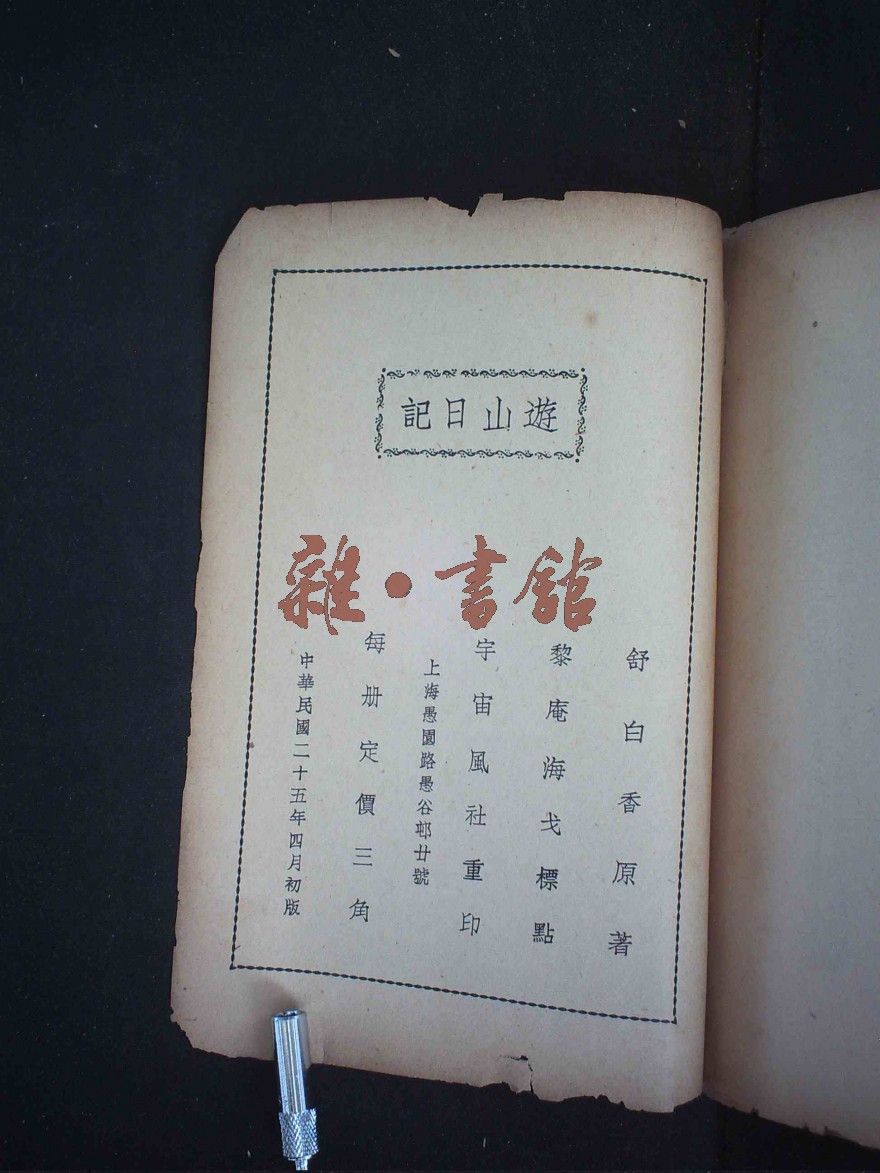 遊山日記
雜·書館
舒白香原著
黎庵海戈標點
宇宙風社重印
上海愚園路愚谷邨廿號
每册定價三角
中華民國二十五年四月初版